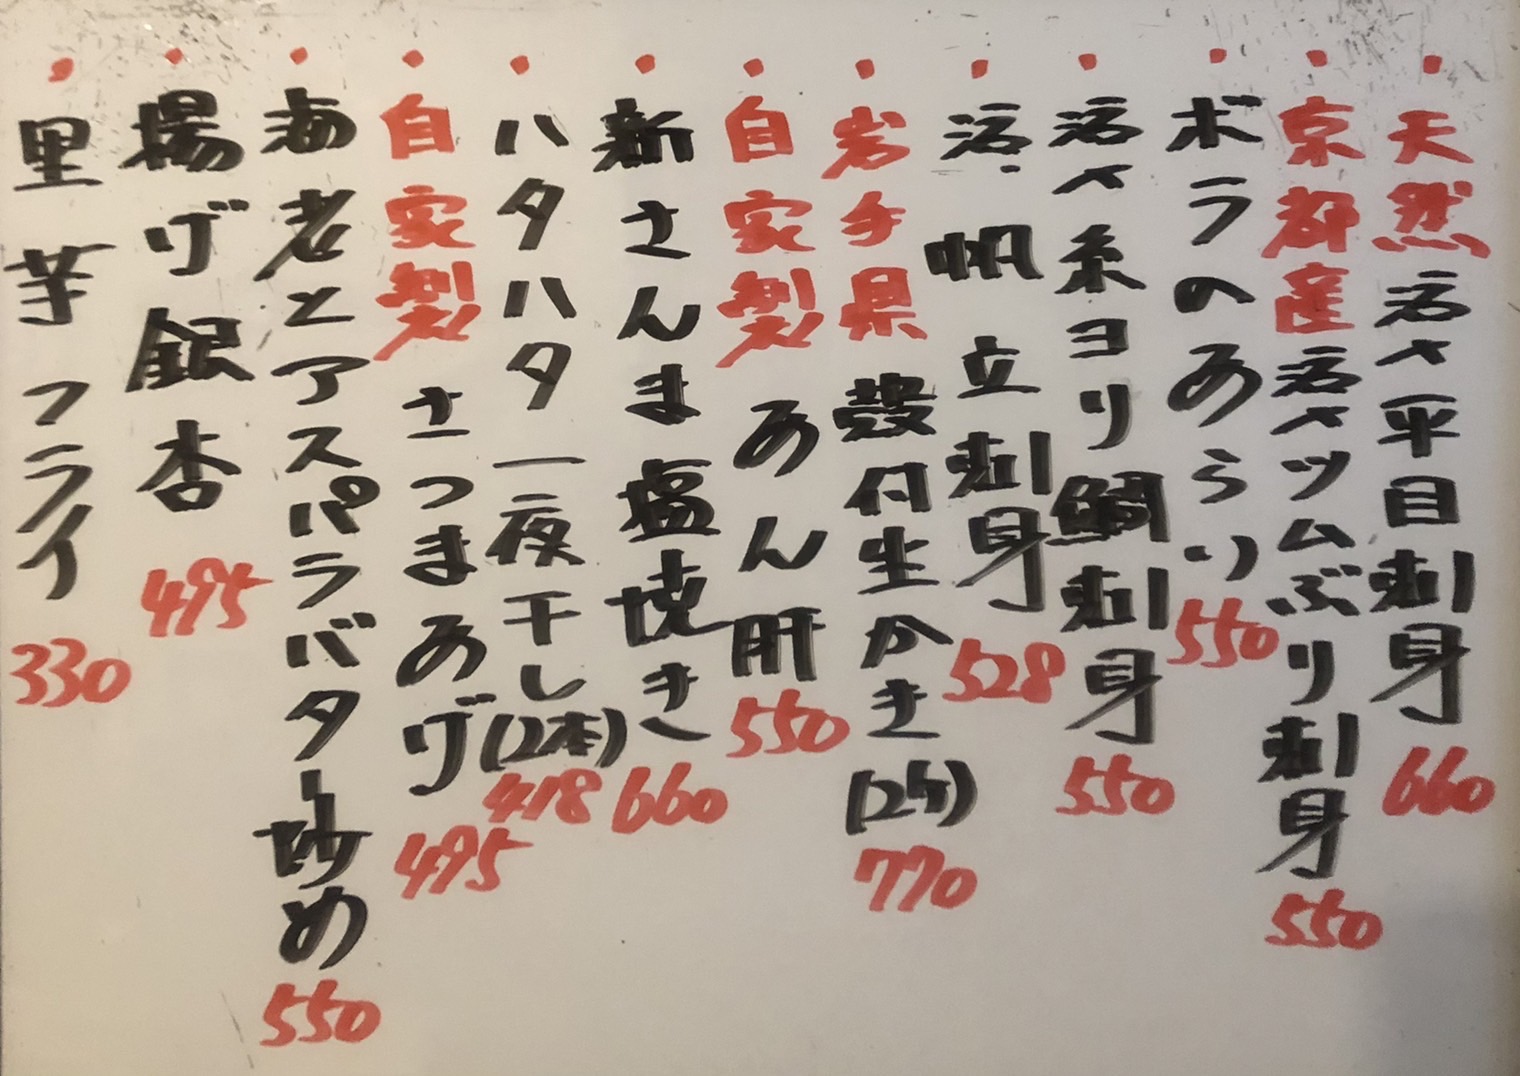 ・天然活〆平目刺身 660
・京都産活〆ツムぶり刺身 550
・ボラのあらい 550
・活〆糸ヨリ鯛刺身 550
・活・帆立刺身 528
・岩手県殻付生かき(2ケ) 770
・自家製あん肝 550
・新さんま塩焼き 660
・ハタハタ一夜干し(2本) 418
・自家製さつまあげ 495
・海老とアスパラバター炒め 550
・揚げ銀杏 495
・里芋フライ 330